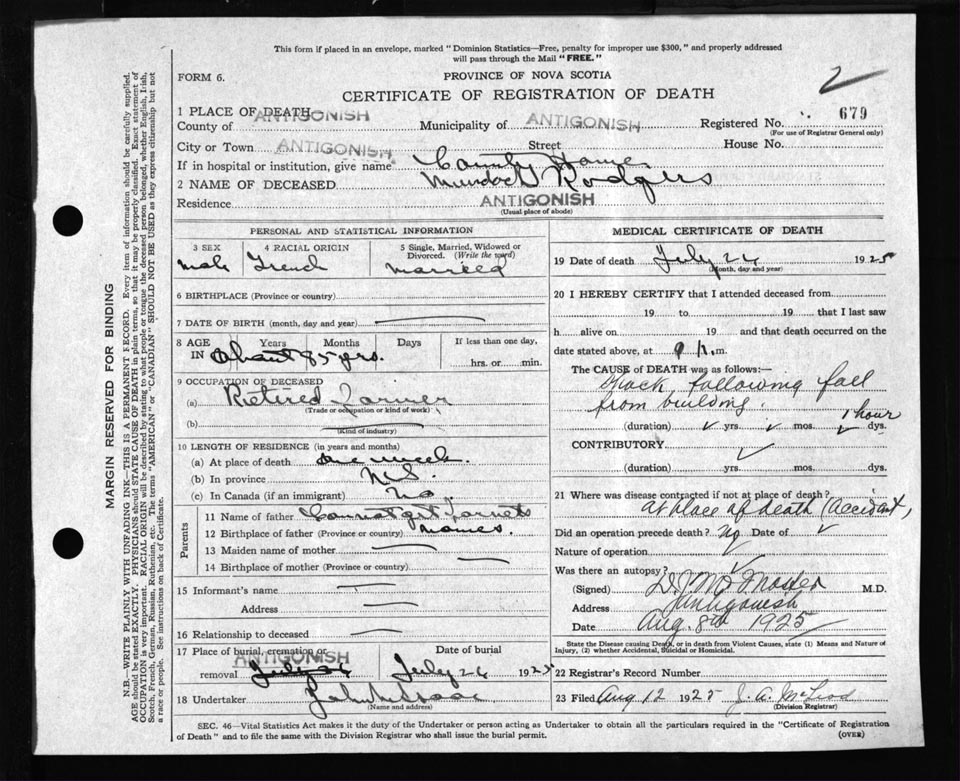 This form if placed in an envelope, marked "Dominion Statistics—Free, penalty for improper use $300," and properly addressed
will pass through the Mail "FREE."
FORM 6.
PROVINCE OF NOVA SCOTIA
2
CERTIFICATE OF REGISTRATION OF DEATH
1 PLACE OF DEATH
County of ANTIGONISH Municipality of ANTIGONISH Registered No. 679
(For use of Registrar General only)
City or Town ANTIGONISH Street House No.
If in hospital or institution, give name County Home
2 NAME OF DECEASED Murdoch Rodgers
Residence ANTIGONISH
(Usual place of abode)
PERSONAL AND STATISTICAL INFORMATION
3 SEX 4 RACIAL ORIGIN 5 Single, Married, Widowed or
Divorced. (Write the word)
male French married
6 BIRTHPLACE (Province or country)
7 DATE OF BIRTH (month, day and year)
8 AGE Years Months Days If less than one day,
IN About 85 yrs. hrs. or min.
9 OCCUPATION OF DECEASED
(a) Retired Farmer
(Trade or occupation or kind of work)
(b)
(Kind of industry)
10 LENGTH OF RESIDENCE (in years and months)
(a) At place of death one week
(b) In province N.S.
(c) In Canada (if an immigrant) No
Parents
11 Name of father Cannot get
12 Birthplace of father (Province or country) names.
13 Maiden name of mother
14 Birthplace of mother (Province or country)
15 Informant's name
Address
16 Relationship to deceased
17 Place of burial, cremation or Date of burial
removal ANTIGONISH July 26 July 26 1925
18 Undertaker
(Name and address)
MEDICAL CERTIFICATE OF DEATH
19 Date of death July 24 1925
(Month, day and year)
20 I HEREBY CERTIFY that I attended deceased from
19 to 19 that I last saw
h alive on 19 and that death occurred on
date stated above, at 9 m.
The CAUSE of DEATH was as follows:—
Shock, following fall
from building.
(duration) yrs. mos. 1 hour dys.
CONTRIBUTORY
(duration) yrs. mos. dys.
21 Where was disease contracted if not at place of death?
At place of death (Accident)
Did an operation precede death? No Date of
Nature of operation
Was there an autopsy?
(Signed) M.D.
Address Antigonish
Date Aug. 8th 1925
State the Disease causing Death, or in death from Violent Causes, state (1) Means and Nature of
Injury, (2) whether Accidental, Suicidal or Homicidal.
22 Registrar's Record Number
23 Filed Aug 12 1925 J. A.
(Division Registrar)
SEC. 46—Vital Statistics Act makes it the duty of the Undertaker or person acting as Undertaker to obtain all the particulars required in the "Certificate of Registration
of Death" and to file the same with the Division Registrar who shall issue the burial permit.
(OVER)
MARGIN RESERVED FOR BINDING
N.B.—WRITE PLAINLY WITH UNFADING INK—THIS IS A PERMANENT RECORD. Every item of information should be carefully supplied.
AGE should be stated EXACTLY. PHYSICIANS should STATE CAUSE OF DEATH in plain terms, so that it may be properly classified. Exact statement of
OCCUPATION is very important. RACIAL ORIGIN will be described by stating to what people or tongue the deceased person belonged, whether English, Irish,
Scotch, French, German, Russian, Ruthenian, etc. The terms "AMERICAN" or "CANADIAN" SHOULD NOT BE USED as they express citizenship but not
a race or people. See instructions on back of Certificate.